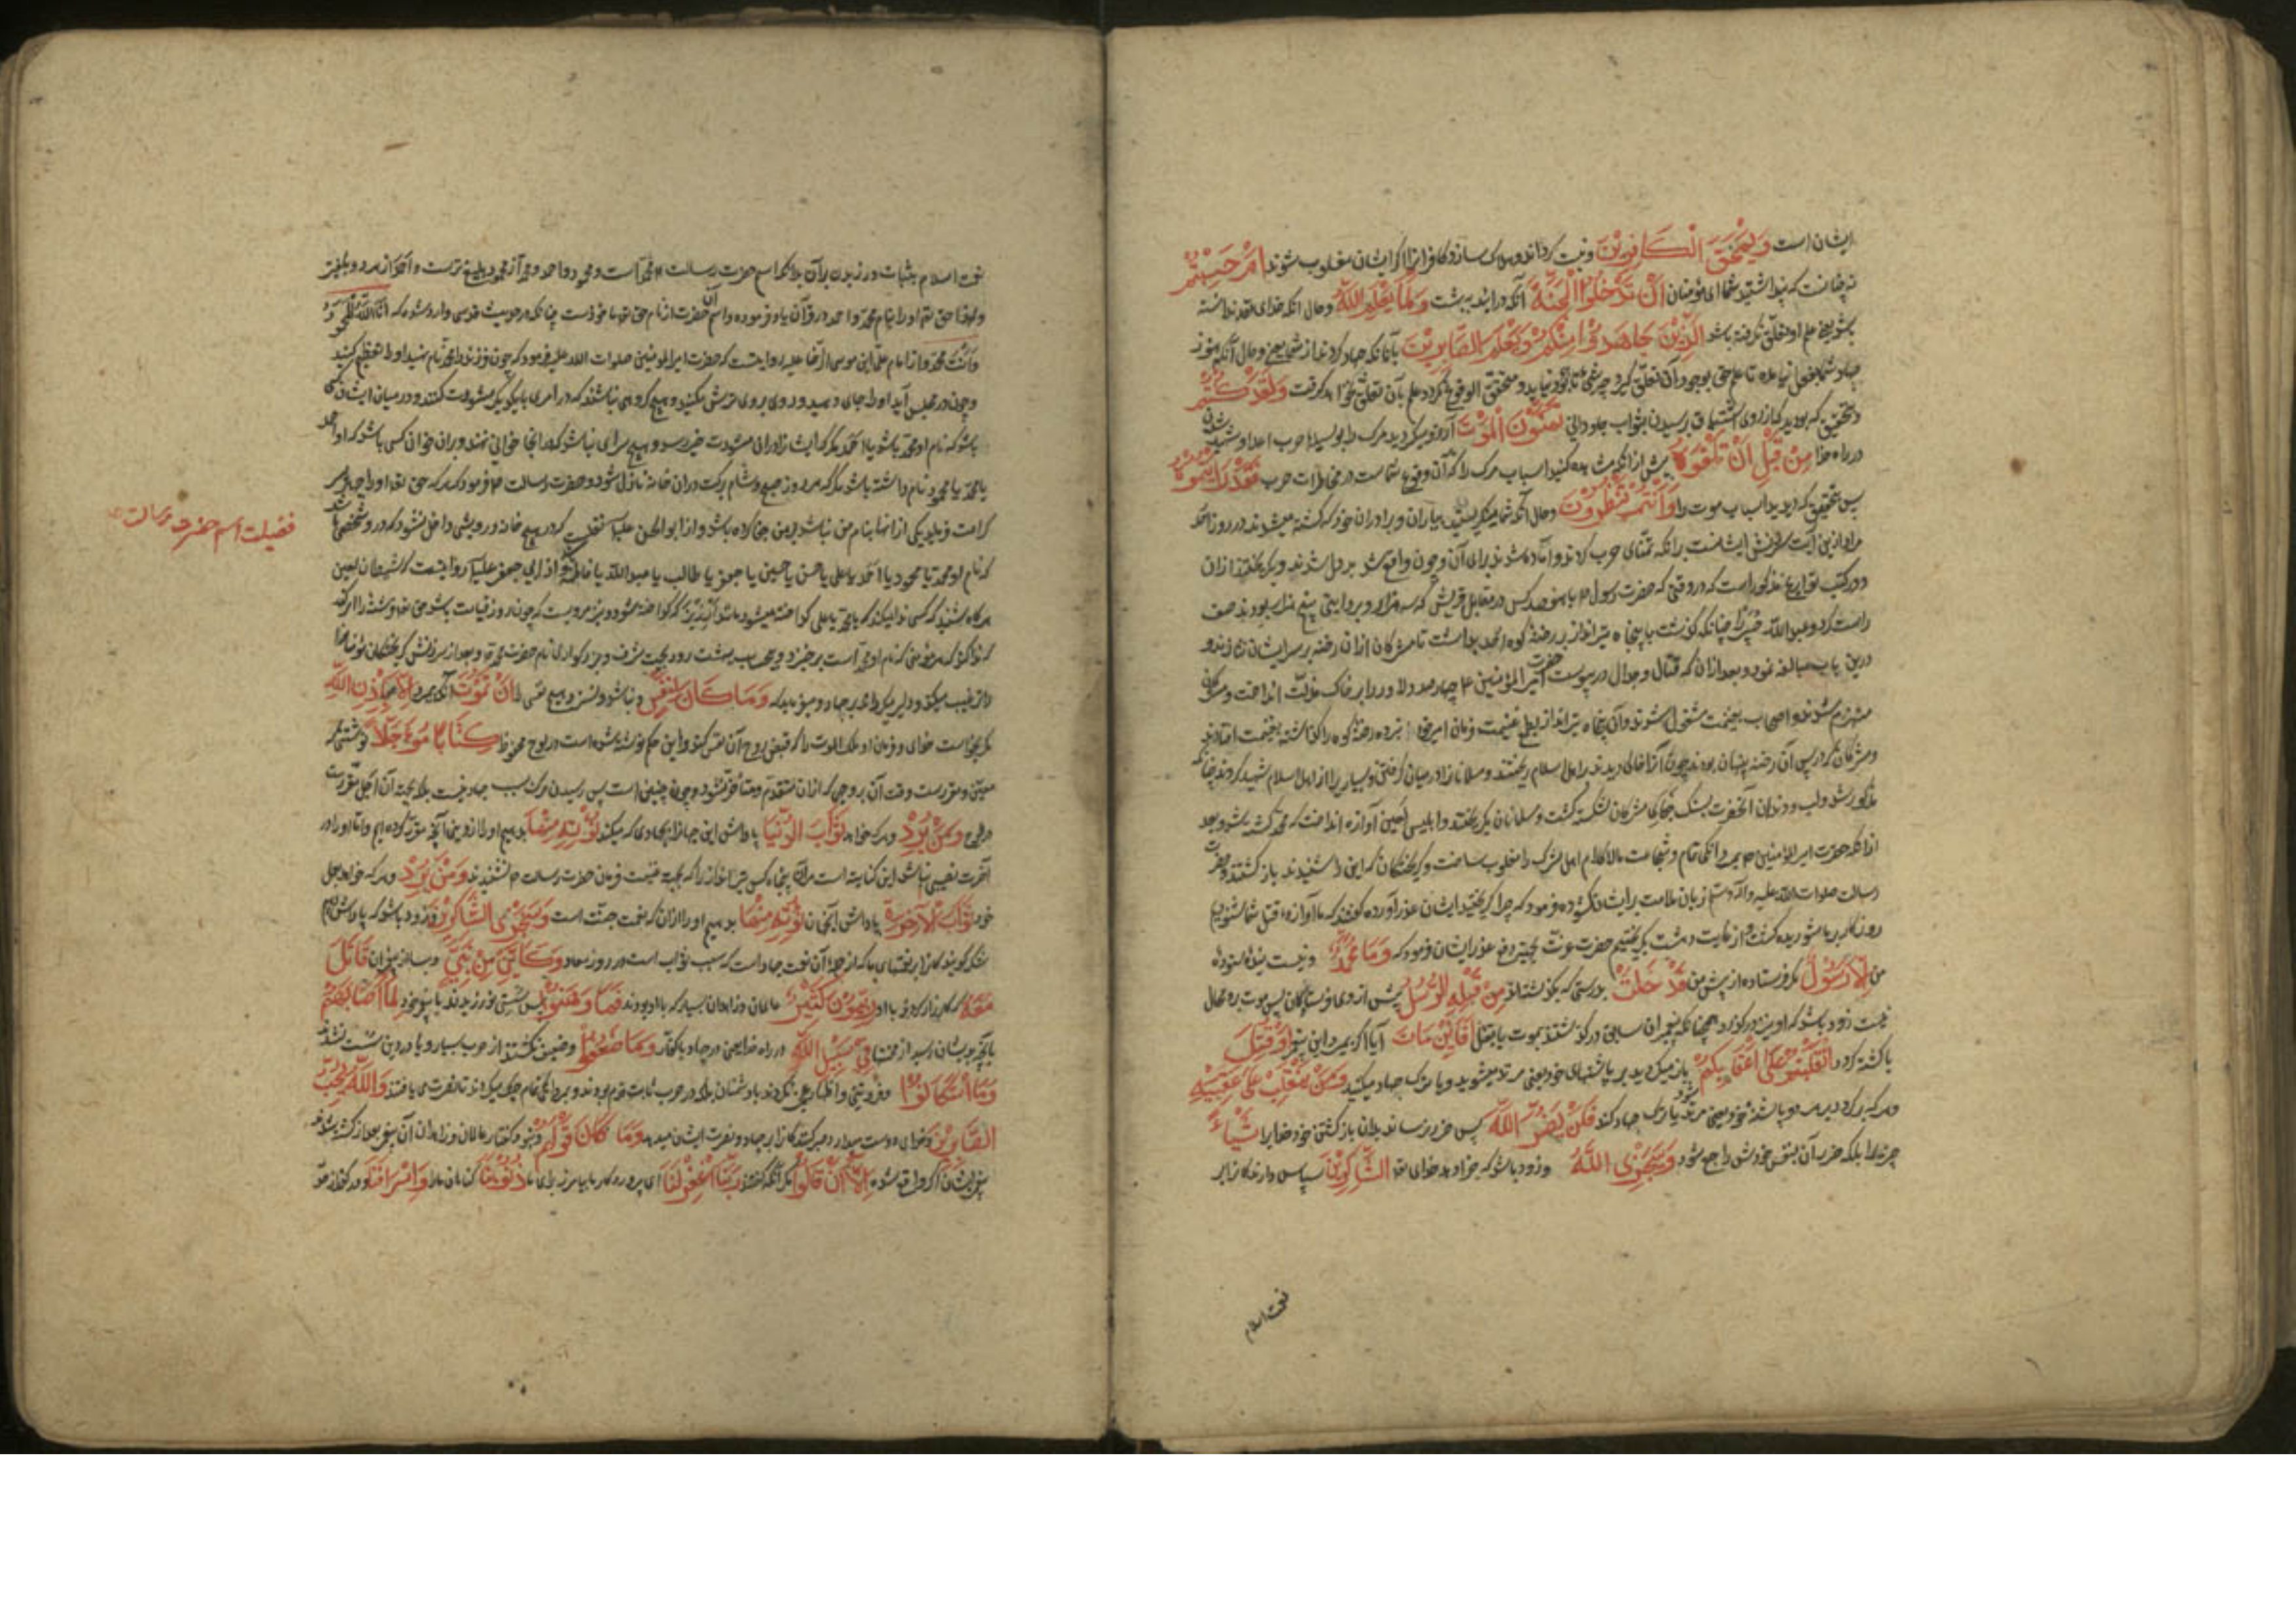 ایشان است وَيَمْحَقَ الْكَافِرِينَ ونیست گرداند وهلاک سازد کافرانرا اگر ایشان مغلوب شوند اَمْ حَسِبْتُمْ
نه چنانست که پنداشتید شما ای مؤمنان اَنْ تَدْخُلُوا الْجَنَّةَ آنکه درائید به بهشت وَلَمَّا يَعْلَمِ اللّٰهُ وحال انکه خدای ندانسته
یعنی علم او تعلق نگرفته باشد الَّذِيْنَ جَاهَدُوْا مِنْكُمْ وَيَعْلَمَ الصَّابِرِيْنَ بآنانکه جهاد کردند از شما یعنی وحال آنکه هنوز
جهاد شما بفعل نیامده تا علم حق بوجود آن تعلق گیرد چه شئ تا بوجود نیاید ومتحقق الوقوع نگردد علم بآن تعلق نخواهد گرفت وَلَقَدْ كُنْتُمْ
وبتحقیق که بودید که از روی اشتیاق رسیدن بثواب جاودانی تَمَنَّوْنَ الْمَوْتَ آرزو میکردید مرگ را بوسیله حرب اعدا وشهید شدن
در راه خدا مِنْ قَبْلِ اَنْ تَلْقَوْهُ پیش از انکه مشاهده کنید اسباب مرگ را که آن وقوع شماست در مخاطرات حرب فَقَدْ رَاَيْتُمُوْهُ
پس بتحقیق که دیدید اسباب موت را وَاَنْتُمْ تَنْظُرُوْنَ وحال آنکه شما مینگریستید بیاران وبرادران خود که کشته میشدند در روز احد
مراد ازین آیت سرزنش ایشانست برانکه تمنّای حرب کردند وآماده شدند برای آن وچون واقع شد بددل شدند وبگریختند ازان
ودر کتب تواریخ مذکور است که در وقتی که حضرت رسول ص با هفتصد کس در مقابل قریش که سه هزار وبروایتی پنج هزار بودند صف
راست کرد وعبدالله جبیر را چنانکه گذشت با پنجاه تیرانداز بر رخنهٔ کوه احد بداشت تا مشرکان ازان رخنه بر سر ایشان نتازند و
درین باب مبالغه نمود وبعد ازان که قتال وجدال در پیوست حضرت امیرالمؤمنین ع چهار علمدار را بر خاک مذلّت انداخت ومشرکان
منهزم شدند واصحاب بغنیمت مشغول شدند وآن پنجاه تیرانداز بطمع غنیمت فرمان امیر خود نبرده رخنهٔ کوه را گذاشته بغنیمت افتادند
ومشرکان که در پس آن رخنه پنهان بودند چون آنرا خالی دیدند بر اهل اسلام ریختند ومسلمانان را در میان گرفتند وبسیاری را از اهل اسلام شهید کردند چنانکه
مذکور شد ولب ودندان آنحضرت بسنگ جفای مشرکان شکسته گشت ومسلمانان بگریختند وابلیس لعین آوازه انداخت که محمد کشته شد وبعد
ازانکه حضرت امیرالمؤمنین ع بمردانگی تمام وشجاعت مالاکلام اهل شرک را مغلوب ساخت وگریختگان که این را شنیدند باز گشتند وحضرت
رسالت صلوات الله علیه وآله وسلم زبان ملامت بر ایشان گشوده فرمود که چرا گریختید ایشان عذر آورده گفتند که ما آوازهٔ قتل شما شنیدیم
روزگار بر ما شوریده گشت واز غایت دهشت بگریختیم حضرت عزت بجهة دفع عذر ایشان فرمود که وَمَا مُحَمَّدٌ ونیست ستوده
من اِلَّا رَسُوْلٌ مگر فرستاده از پیش من قَدْ خَلَتْ بدرستی که بگذشتند مِنْ قَبْلِهِ الرُّسُلُ پیش از وی فرستادگان پس موت بر او محال
نیست زود باشد که او نیز در گذرد همچنانکه پیغمبران سابق در گذشتند بموت یا بقتل اَفَاِنْ مَاتَ آیا اگر بمیرد این پیغمبر اَوْ قُتِلَ
یا کشته گردد انْقَلَبْتُمْ عَلٰى اَعْقَابِكُمْ باز میگردید بر پاشنهای خود یعنی مرتد میشوید ویا ترک جهاد میکنید وَمَنْ يَنْقَلِبْ عَلٰى عَقِبَيْهِ
وهر که برگردد بر هر دو پاشنهٔ خود یعنی مرتد شود یا ترک جهاد کند فَلَنْ يَضُرَّ اللّٰهَ پس ضرر نرساند بدان باز گشتن خود خدایرا شَيْئًا
چیزیرا بلکه ضرر آن بنفس خودش راجع شود وَسَيَجْزِي اللّٰهُ وزود باشد که جزا دهد خدای الشَّاكِرِيْنَ سپاس دارندگانرا بر
نعمت اسلام
نعمت اسلام بثبات ورزیدن بر آن بدانکه اسم حضرت رسالت محمد است ومحمود واحمد ومحمد از محمود بلیغ ترست واحمد از هر دو بلیغتر
ولهذا حق تعالی او را بنام محمد واحمد در قرآن یاد فرموده واسم آن حضرت از نام حق تعالی ماخوذست چنانکه در حدیث قدسی وارد شده که اَنَا اللّٰهُ الْمَحْمُوْدُ
وَاَنْتَ مُحَمَّدٌ واز امام علی ابن موسی الرضا علیه روایتست که حضرت امیرالمؤمنین صلوات الله علیه فرمود که چون فرزند را محمد نام نهید او را تعظیم کنید
وچون در مجلس آید او را جای دهید وروی بر وی ترش مکنید وهیچ گروهی نباشند که در امری با یکدیگر مشورت کنند ودر میان ایشان کسی
باشد که نام او محمد باشد یا احمد مگر که ایشانرا در آن مشورت خیر رسد وهیچ سرای نباشد که در آنجا خوانی نهند وبران خوان کسی باشد که او احمد
یا محمد یا محمود نام داشته باشد مگر که هر روز صبح وشام برکت دران خانه نازل شود وحضرت رسالت فرمود که هر که حق تعالی او را چهار پسر
کرامت فرماید ویکی از انها بنام من نباشد بر من جفا کرده باشد واز ابوالحسن علیه السلام نقلست که در هیچ خانه درویشی داخل نشود که در و شخصی باشد
که نام او محمد یا محمود یا احمد یا علی یا حسن یا حسین یا جعفر یا طالب یا عبدالله یا فاطمه واز ابی جعفر علیه السلام روایتست که شیطان لعین
هرگاه شنود که کسی ندا میکند که یا محمد یا علی گداخته میشود مانند ارزیز که گداخته شود ونیز مرویست که چون روز قیامت باشد حق تعالی فرشته را امر کند
که ندا کند که هر مؤمنی که نام او محمد است برخیزد وبیحساب ببهشت رود بجهت شرف وبزرگواری نام حضرت محمد ص وبعد از سرزنش گریختگان مؤمنانرا
ترغیب میکند ودلیر میگرداند بر جهاد ومیفرماید که وَمَا كَانَ لِنَفْسٍ ونباشد ونسزد هیچ نفسی را اَنْ تَمُوْتَ آنکه بمیرد اِلَّا بِاِذْنِ اللّٰهِ
مگر بخواست خدای وفرمان او ملک الموت را که قبض روح آن نفس کند واین حکم نوشته شده است در لوح محفوظ كِتَابًا مُؤَجَّلًا نوشتنی که
معین ومقررست وقت آن بروجهی که ازان متقدم ومتاخر نشود وچون چنین است پس رسیدن مرگ بسبب جهاد نیست بلکه بجهة آن اجل مقررست
وَمَنْ يُرِدْ وهر که خواهد ثَوَابَ الدُّنْيَا پاداش این جهانرا بجهادی که میکند نُؤْتِهِ مِنْهَا بدهیم او را از دنیا آنچه مقرر کرده ایم واما او را در
آخرت نصیبی نباشد این کنایه است مر آن پنجاه کس تیرانداز را که بجهة غنیمت فرمان حضرت رسالت نشنیدند وَمَنْ يُرِدْ وهر که خواهد بعمل
خود ثَوَابَ الْاٰخِرَةِ پاداش آنجهان نُؤْتِهِ مِنْهَا بدهیم او را ازان که نعمت جنّت است وَسَنَجْزِي الشَّاكِرِيْنَ وزود باشد که پاداش دهیم
شکر گویندگانرا بر نعمتهای ما که از جملهٔ آن نعمت جهاد است که سبب ثواب است در روز معاد وَكَاَيِّنْ مِنْ نَبِيٍّ وبسا از پیغمبران قَاتَلَ
مَعَهُ که کارزار کردند با او رِبِّيُّوْنَ كَثِيْرٌ عالمان وزاهدان بسیار که با او بودند فَمَا وَهَنُوْا پس سستی نورزیدند با پیغمبر خود لِمَا اَصَابَهُمْ
بآنچه بدیشان رسید از محنتها فِيْ سَبِيْلِ اللّٰهِ در راه خدا یعنی در جهاد با کفار وَمَا ضَعُفُوْا وضعیف نگشتند از حرب بسیار ویا در دین سست نشدند
وَمَا اسْتَكَانُوْا وفروتنی واظهار عجز نکردند با دشمنان بلکه در حرب ثابت قدم بودند وبمردانگی تمام جنگ میکردند تا نصرت می یافتند وَاللّٰهُ يُحِبُّ
الصَّابِرِيْنَ وخدای دوست میدارد صبرکنندگانرا بر جهاد ونصرت ایشان میدهد وَمَا كَانَ قَوْلَهُمْ ونبود گفتار عالمان وزاهدان آن پیغمبر بعد از کشته شدن
پیغمبر ایشان اگر واقع شده اِلَّا اَنْ قَالُوْا مگر آنکه گفتند رَبَّنَا اغْفِرْ لَنَا ای پروردگار ما بیامرز برای ما ذُنُوْبَنَا گناهان ما را وَاِسْرَافَنَا ودر گذار از حد
فضیلت اسم حضرت رسالت